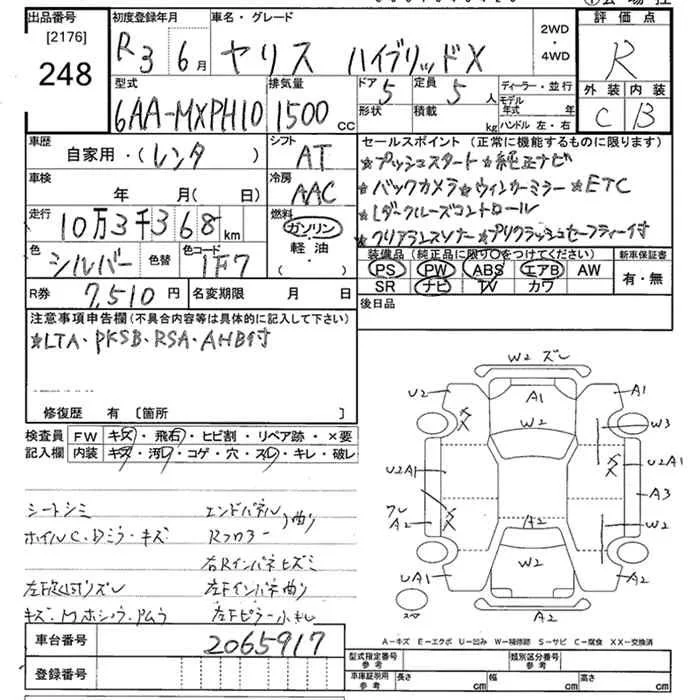 出品番号
[2176]
248
初度登録年月
R3 6月
車名・グレード
ヤリス ハイブリッドX
2WD
・
4WD
評価点
R
外装 内装
C B
型式
6AA-MXPH10
排気量
1500 cc
ドア 5
定員 5 人
形状
積載 kg
ディーラー・並行
モデル年式 年
ハンドル 左・右
車歴
自家用・(レンタ)
シフト
AT
車検
年 月(日)
冷房
AAC
走行
10万3千368 km
燃料
ガソリン
・
軽油
・
色
シルバー
色替
色コード
1F7
R券 7,510 円
名変期限 月 日
セールスポイント(正常に機能するものに限ります)
★プッシュスタート★純正ナビ
★バックカメラ★ウィンカーミラー★ETC
★レーダークルーズコントロール
★クリアランスソナー★プリクラッシュセーフティー付
装備品(純正品に限り○をつけてください)
PS PW ABS エアB AW
SR ナビ TV カワ
新車保証書
有・無
後日品
注意事項申告欄(不具合内容等は具体的に記入して下さい)
★LTA・PKSB・RSA・AHB付
修復歴 有 〔箇所 〕
検査員記入欄
FW キズ・飛石・ヒビ割・リペア跡・×要
内装 キズ・汚レ・コゲ・穴・スレ・キレ・破レ
シートシミ
ホイルC・Dミラーキズ
エンドパネル
曲り
Rフロアー
右Rインパネヒズミ
左Fインパネ曲り
左Fピラー
車台番号 2065917
登録番号
W2 ズレ
A1
U2
A1
W2
W3
XX
XX
U2A1
U2A1
A3
ワレ
A2
XX
W2
A2
W2
UA1
A2
A2
スペア
A-キズ E-エクボ U-凹み W-補修跡 S-サビ C-腐食 XX-交換済
型式指定番号
参考
類別区分番号
参考
車庫証明用
参考
長さ cm
幅 cm
高さ cm